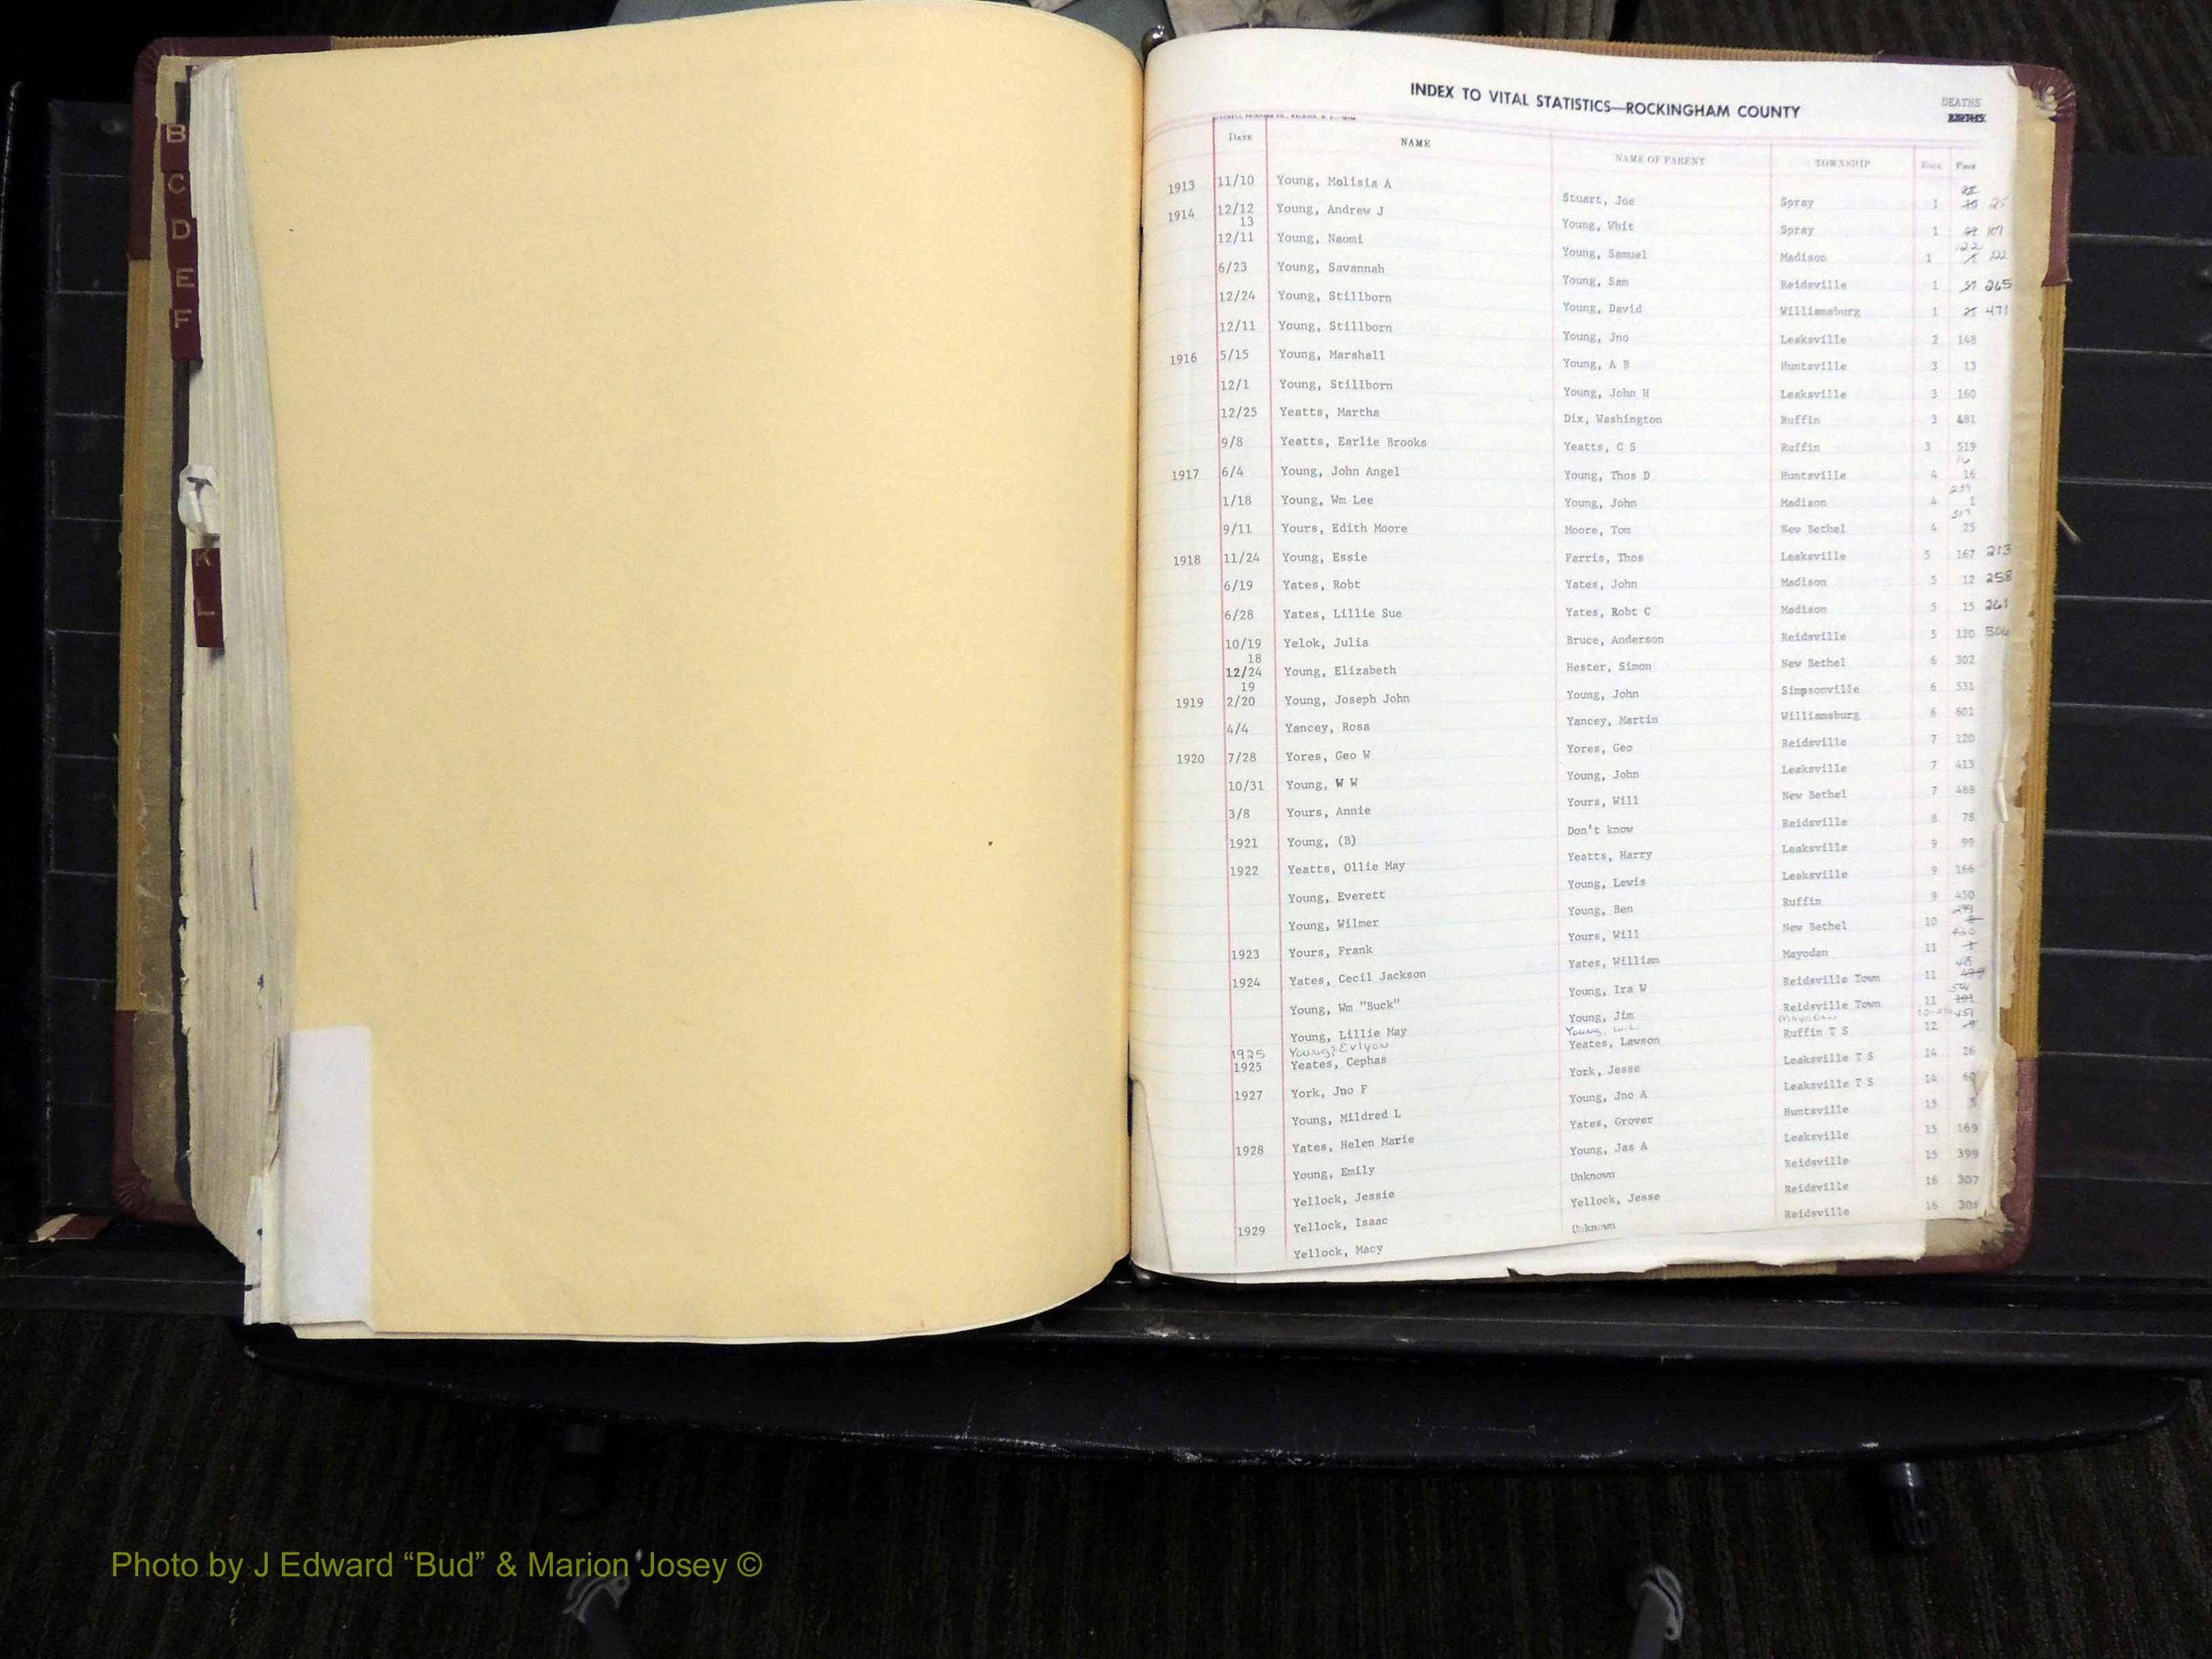 B
C
D
E
F
K
L
INDEX TO VITAL STATISTICS—ROCKINGHAM COUNTY
DEATHS
DATE NAME NAME OF PARENT TOWNSHIP BOOK PAGE
1913 11/10 Young, Molisia A Stuart, Joe Spray 1 25
1914 12/12 Young, Andrew J Young, Whit Spray 1 107
13
12/11 Young, Naomi Young, Samuel Madison 1 122
6/23 Young, Savannah Young, Sam Reidsville 1 37 265
12/24 Young, Stillborn Young, David Williamsburg 1 25 471
12/11 Young, Stillborn Young, Jno Leaksville 2 148
1916 5/15 Young, Marshall Young, A B Huntsville 3 13
12/1 Young, Stillborn Young, John H Leaksville 3 160
12/25 Yeatts, Martha Dix, Washington Ruffin 3 481
9/8 Yeatts, Earlie Brooks Yeatts, C S Ruffin 3 519
1917 6/4 Young, John Angel Young, Thos D Huntsville 4 16
1/18 Young, Wm Lee Young, John Madison 4 1
9/11 Yours, Edith Moore Moore, Tom New Bethel 4 25
1918 11/24 Young, Essie Farris, Thos Leaksville 5 167 213
6/19 Yates, Robt Yates, John Madison 5 12 258
6/28 Yates, Lillie Sue Yates, Robt C Madison 5 15 261
10/19 Yelok, Julia Bruce, Anderson Reidsville 5 120 506
18
12/24 Young, Elizabeth Hester, Simon New Bethel 6 302
19
1919 2/20 Young, Joseph John Young, John Simpsonville 6 531
4/4 Yancey, Rosa Yancey, Martin Williamsburg 6 601
1920 7/28 Yores, Geo W Yores, Geo Reidsville 7 120
10/31 Young, W W Young, John Leaksville 7 413
3/8 Yours, Annie Yours, Will New Bethel 7 488
1921 Young, (B) Don't know Reidsville 8 78
1922 Yeatts, Ollie May Yeatts, Harry Leaksville 9 99
Young, Everett Young, Lewis Leaksville 9 166
Young, Wilmer Young, Ben Ruffin 9 450
1923 Yours, Frank Yours, Will New Bethel 10
1924 Yates, Cecil Jackson Yates, William Mayodan 11
Young, Wm "Buck" Young, Ira W Reidsville Town 11
Young, Lillie May Young, Jim Reidsville Town 11 101
1925 Young, Evlyon Young, W.L. Mayodan
1925 Yeates, Cephas Yeates, Lawson Ruffin T S 12
1927 York, Jno F York, Jesse Leaksville T S 14 26
Young, Mildred L Young, Jno A Leaksville T S 14 60
1928 Yates, Helen Marie Yates, Grover Huntsville 15
Young, Emily Young, Jas A Leaksville 15 169
Yellock, Jessie Unknown Reidsville 15 399
1929 Yellock, Isaac Yellock, Jesse Reidsville 16 307
Yellock, Macy Unknown Reidsville 16 308
Photo by J Edward “Bud” & Marion Josey ©